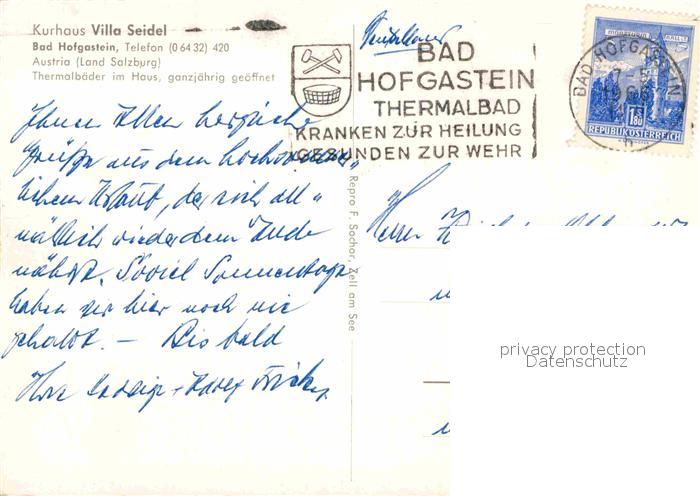 Kurhaus Villa Seidel
Bad Hofgastein, Telefon (0 64 32) 420
Austria (Land Salzburg)
Thermalbäder im Haus, ganzjährig geöffnet
BAD
HOFGASTEIN
THERMALBAD
KRANKEN ZUR HEILUNG
GESUNDEN ZUR WEHR
BAD HOFGASTEIN
1.80
REPUBLIK ÖSTERREICH
Ihnen Allen herzliche
Grüße aus dem hochsommer"
lichem Urlaub, der sich all"
mählich wieder dem Ende
nähert. Soviel Sonnentage
haben wir hier noch nie
gehabt. — Bis bald
Ihre
Repro F. Sochor, Zell am See
Herrn
privacy protection
Datenschutz